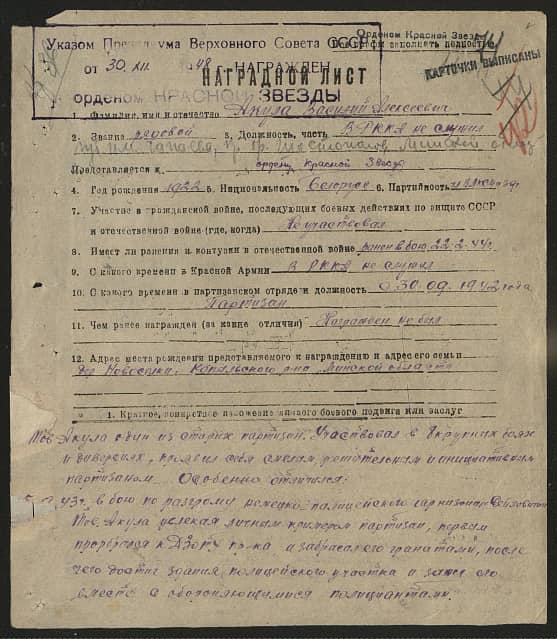 Орденом Красной Звезды
Указом Президиума Верховного Совета СССР
от 30 XII 1948 НАГРАЖДЕН
НАГРАДНОЙ ЛИСТ
КАРТОЧКИ ВЫПИСАНЫ
орденом КРАСНОЙ ЗВЕЗДЫ
1. Фамилия, имя и отчество Якула Василий Алексеевич
2. Звание рядовой 3. Должность, часть В РККА не служил
Представляется к ордену Красной Звезда
4. Год рождения 1922 5. Национальность белорус 6. Партийность
7. Участие в гражданской войне, последующих боевых действиях по защите СССР
и отечественной войне (где, когда) Не участвовал
8. Имеет ли ранения и контузии в отечественной войне ранен в бою 22.2.44г.
9. С какого времени в Красной Армии В РККА не служил
10. С какого времени в партизанском отряде и должность с 30.09.1942 года
Партизан
11. Чем ранее награжден (за какие отличия) Награжден не был
12. Адрес места рождения представляемого к награждению и адрес его семьи
дер Новоселки, Копыльского р-на Минской области
1. Краткое, конкретное изложение личного боевого подвига или заслуг
Тов. Якула один из старых партизан. Участвовал в 8 крупных боях
и диверсиях, проявил себя смелым, решительным и инициативным
партизаном. Особенно отличился:
43г. в бою по разгрому немецко-полицейского гарнизона
Тов. Якула увлекая личным примером партизан, первым
прорвался к ДЗОТу пр-ка и забросал его гранатами, после
чего достиг здания полицейского участка и зажег его
вместе с обороняющимися полицаями.